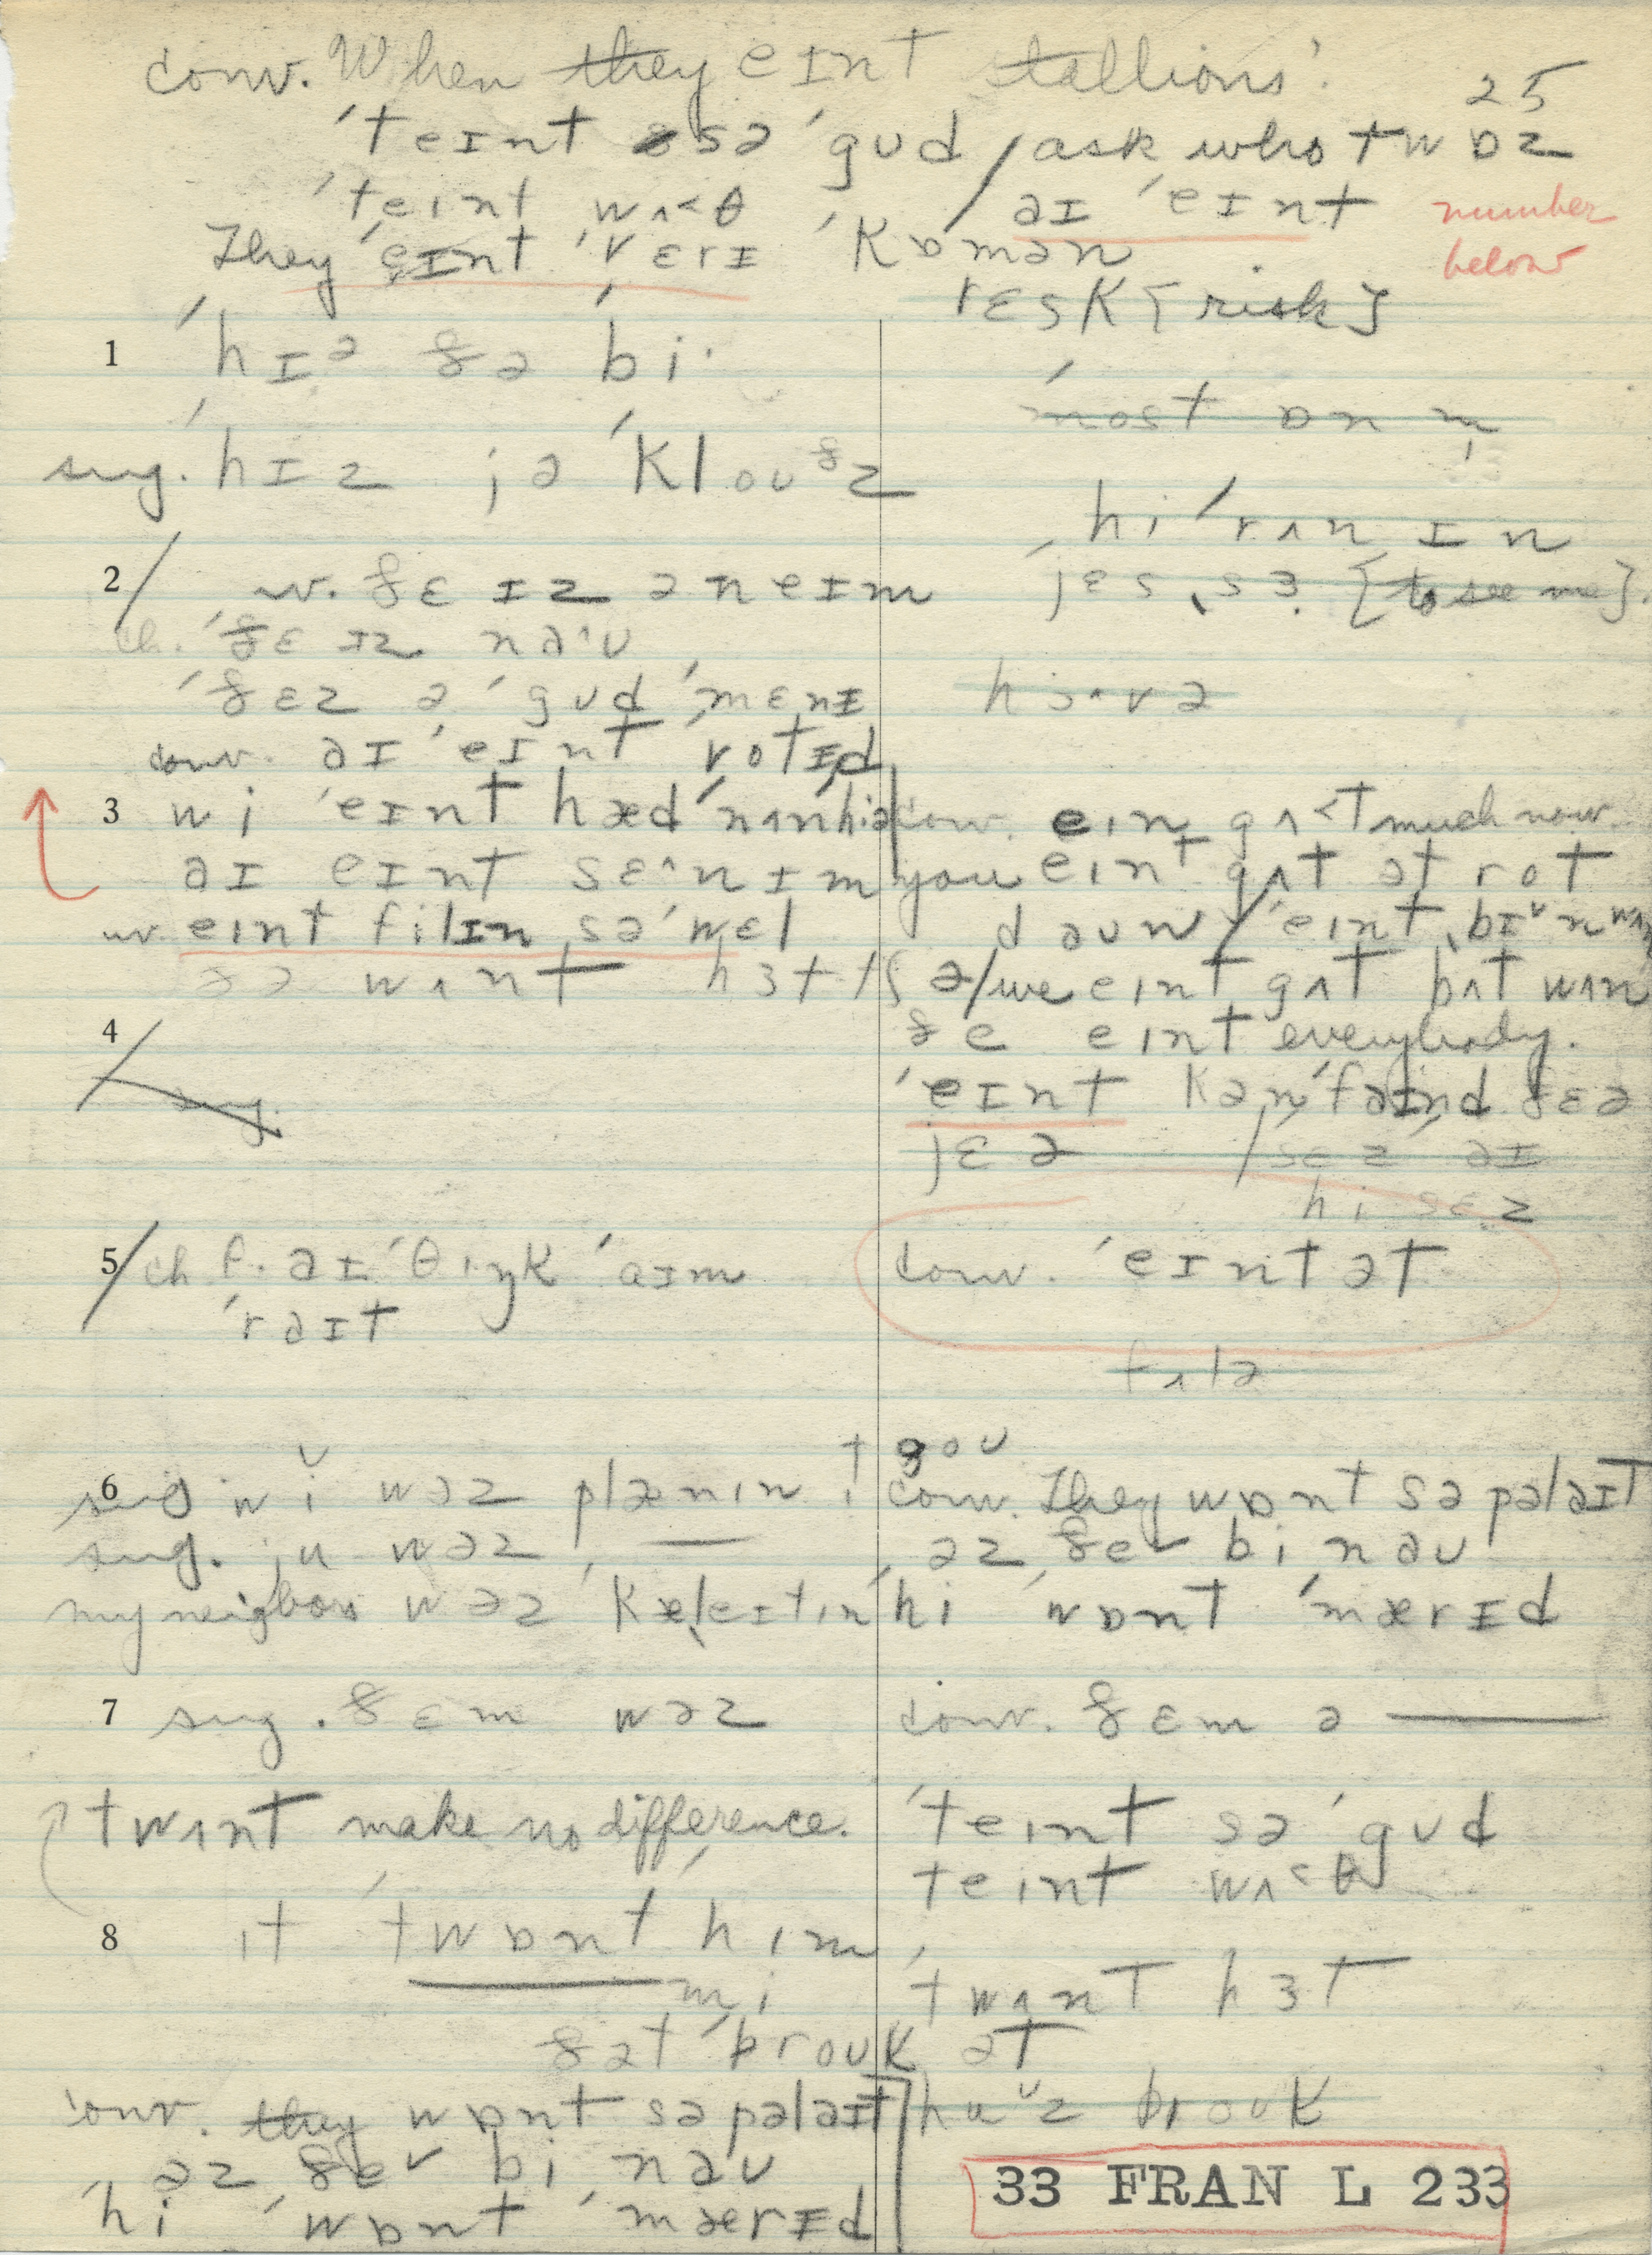 conv. When they eɪnt stallions.
25
ˈteɪnt sə ˈgʊd / ask who twɒz
ˈteɪnt wʌ<θ / əɪ ˈeɪnt
number below
They ˈeɪnt ˈvɛrɪ ˈkɒmən
rɛsk [risk]
1 ˈhɪə ðə ˈbi·
ˈmost ɒn m̩
sug. ˈhɪz jə ˈkloʊðz
hi ˈrʌn ɪn
2/ w. ðɛ ɪz ə neɪm
ˈjɛs ˌsɜ [to see me].
ch. ˈðɛ ɪz nə^ʊ
ˈðɛz ə ˈgʊd ˈmɛnɪ
conv. əɪ ˈeɪnt ˈvotɪd
3 wi ˈeɪnt hæd ˈnʌn hiə
conv. eɪn gʌ<t much now.
əɪ eɪnt sɛ^n ɪm
you eɪnt gʌt ət rot
daʊn / ˈeɪnt ˌbɪn
uv. eɪnt filɪn sə ˈwɛl
wʌnt hɜt
/we eɪnt gʌt bʌt wʌn
4/
ðe eɪnt everybody.
ˈeɪnt kənˈfaɪnd ðɛə
jɛə / sɛz əɪ
hi sɛz
5/ ch f. əɪ ˈθɪŋk ˈaɪm
ˈraɪt
conv. ˈeɪnt ət
6 sug wi wəz plænɪn t goʊ
conv. They wɒnt sə pəlaɪt
sug. ju wəz ——
əz ðeɪ bi nəʊ
my neighbors wəz
hi ˈwɒnt ˈmærɪd
7 sug. ðɛm wəz
conv. ðɛm ə ——
twʌnt make no difference.
ˈteɪnt sə ˈgʊd
teɪnt wʌ<θ
8 ɪt ˈtwɒnt hɪm
mi
ˈtwʌnt hɜt
ðət ˈbroʊk ət
conv. they wɒnt sə pəlaɪt
huz broʊk
əz ðe bi nəʊ
ˈhi ˈwɒnt ˈmærɪd
33 FRAN L 233